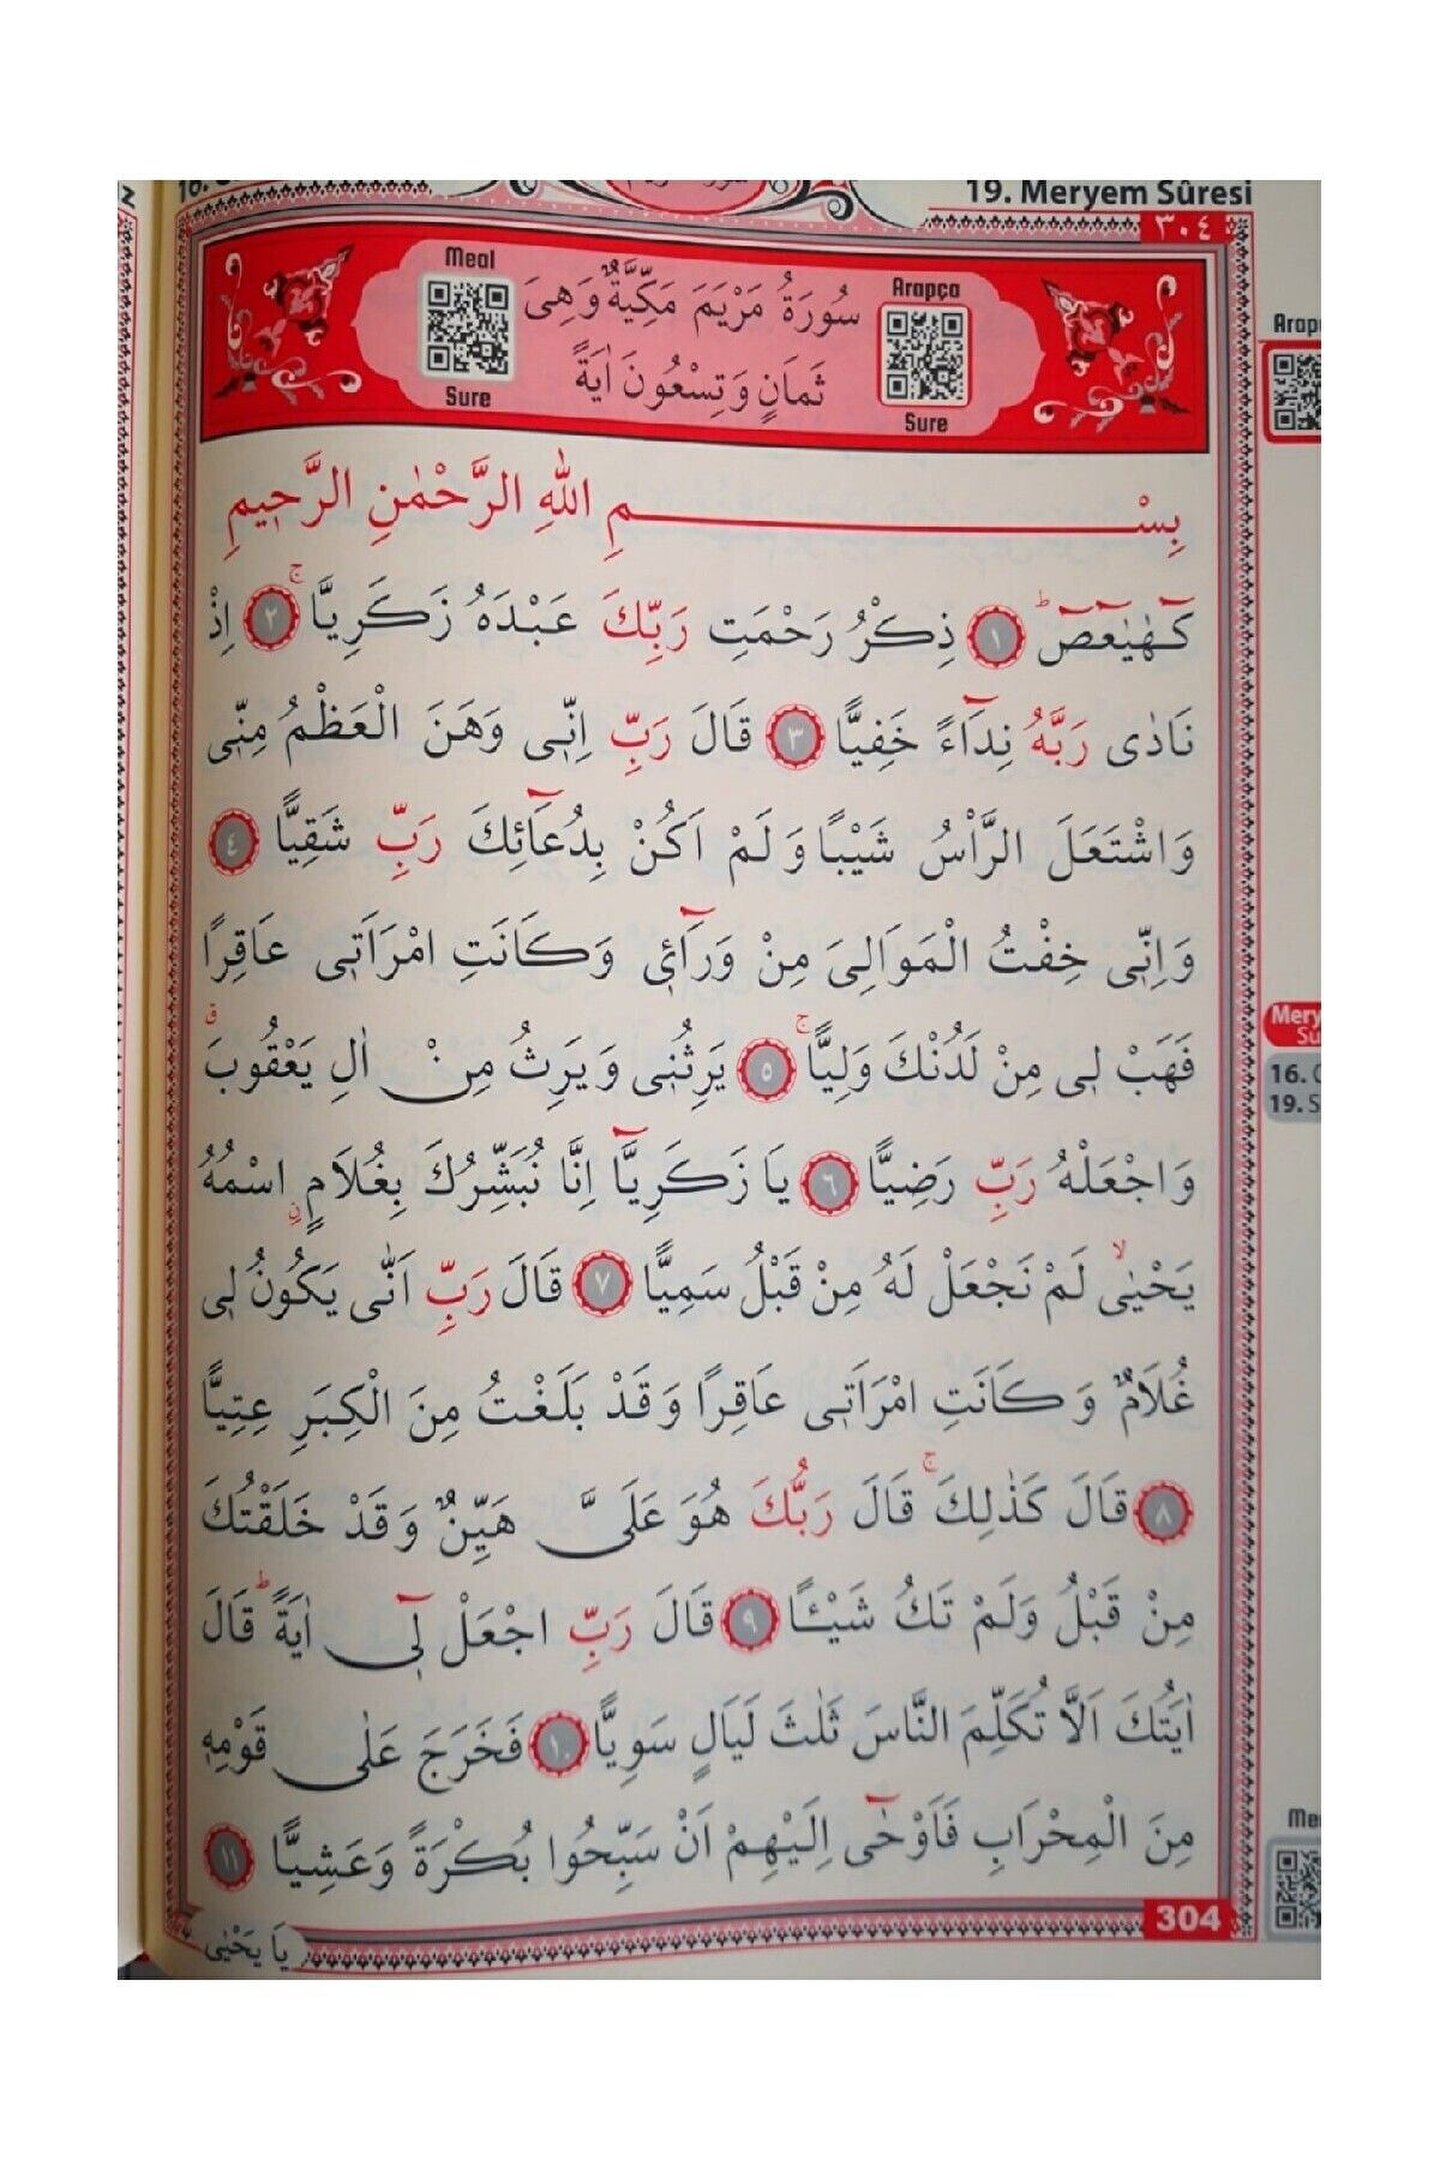 19. Meryem Sûresi
٣٠٤
Meal
Sure
سُورَةُ مَرْيَمَ مَكِّيَّةٌ وَهِىَ
ثَمَانٍ وَتِسْعُونَ اٰيَةً
Arapça
Sure
بِسْمِ اللّٰهِ الرَّحْمٰنِ الرَّحِيمِ
كٓهٰيٰعٓصٓ ۜ ﴿١﴾ ذِكْرُ رَحْمَتِ رَبِّكَ عَبْدَهُ زَكَرِيَّا ۚ ﴿٢﴾ اِذْ
نَادٰى رَبَّهُ نِدَٓاءً خَفِيًّا ﴿٣﴾ قَالَ رَبِّ اِنّ۪ى وَهَنَ الْعَظْمُ مِنّ۪ى
وَاشْتَعَلَ الرَّأْسُ شَيْبًا وَلَمْ اَكُنْ بِدُعَٓائِكَ رَبِّ شَقِيًّا ﴿٤﴾
وَاِنّ۪ى خِفْتُ الْمَوَالِىَ مِنْ وَرَٓاء۪ى وَكَانَتِ امْرَاَت۪ى عَاقِرًا
فَهَبْ ل۪ى مِنْ لَدُنْكَ وَلِيًّا ۚ ﴿٥﴾ يَرِثُن۪ى وَيَرِثُ مِنْ اٰلِ يَعْقُوبَ ۗ
وَاجْعَلْهُ رَبِّ رَضِيًّا ﴿٦﴾ يَا زَكَرِيَّٓا اِنَّا نُبَشِّرُكَ بِغُلَامٍ ۨ اسْمُهُ
يَحْيٰى ۙ لَمْ نَجْعَلْ لَهُ مِنْ قَبْلُ سَمِيًّا ﴿٧﴾ قَالَ رَبِّ اَنّٰى يَكُونُ ل۪ى
غُلَامٌ وَكَانَتِ امْرَاَت۪ى عَاقِرًا وَقَدْ بَلَغْتُ مِنَ الْكِبَرِ عِتِيًّا
﴿٨﴾ قَالَ كَذٰلِكَ ۚ قَالَ رَبُّكَ هُوَ عَلَىَّ هَيِّنٌ وَقَدْ خَلَقْتُكَ
مِنْ قَبْلُ وَلَمْ تَكُ شَيْـًٔا ﴿٩﴾ قَالَ رَبِّ اجْعَلْ ل۪ٓى اٰيَةً ۜ قَالَ
اٰيَتُكَ اَلَّا تُكَلِّمَ النَّاسَ ثَلٰثَ لَيَالٍ سَوِيًّا ﴿١٠﴾ فَخَرَجَ عَلٰى قَوْمِه۪
مِنَ الْمِحْرَابِ فَاَوْحٰٓى اِلَيْهِمْ اَنْ سَبِّحُوا بُكْرَةً وَعَشِيًّا ﴿١١﴾
304
يَا يَحْيٰى
16.
19. S